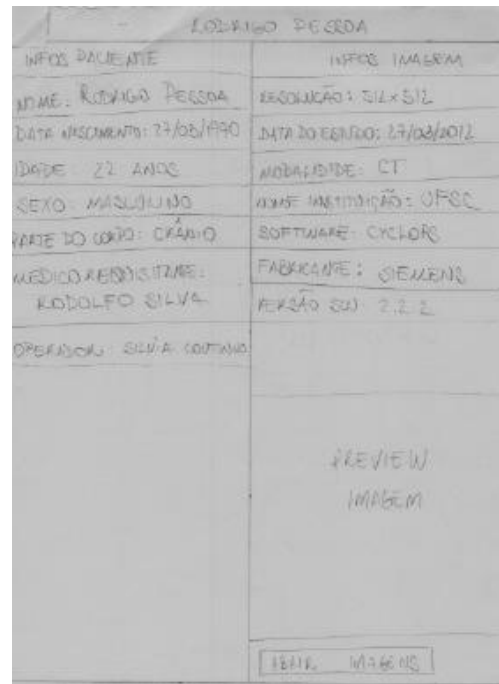 RODRIGO PESSOA
INFOS PACIENTE
NOME: RODRIGO PESSOA
DATA NASCIMENTO: 27/03/1990
IDADE: 22 ANOS
SEXO: MASCULINO
PARTE DO CORPO: CRÂNIO
MEDICO REQUISITANTE:
RODOLFO SILVA
OPERADOR: SILVIA COUTINHO
INFOS IMAGEM
RESOLUÇÃO: 512x512
DATA DO ESTUDO: 27/03/2012
MODALIDADE: CT
NOME INSTITUIÇÃO: UFSC
SOFTWARE: CYCLOPS
FABRICANTE: SIEMENS
VERSÃO SW: 2.2.2
PREVIEW
IMAGEM
ABRIR IMAGENS